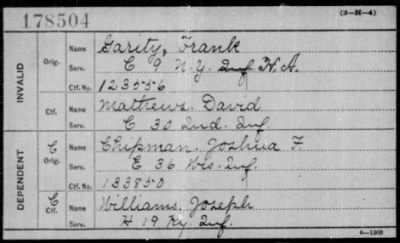 178504
(3-H-4)
INVALID
Orig. Name Garity, Frank
Serv. C 9 N.Y. Inf. H.A.
Ctf. No. 123556
Ctf. Name Mathews, David
Serv. C 30 Ind. Inf.
DEPENDENT
C Orig. Name Chipman, Joshua F.
Serv. E 36 Wis. Inf.
Ctf. No. 133850
C Ctf. Name Williams, Joseph
Serv. H 19 Ky. Inf.